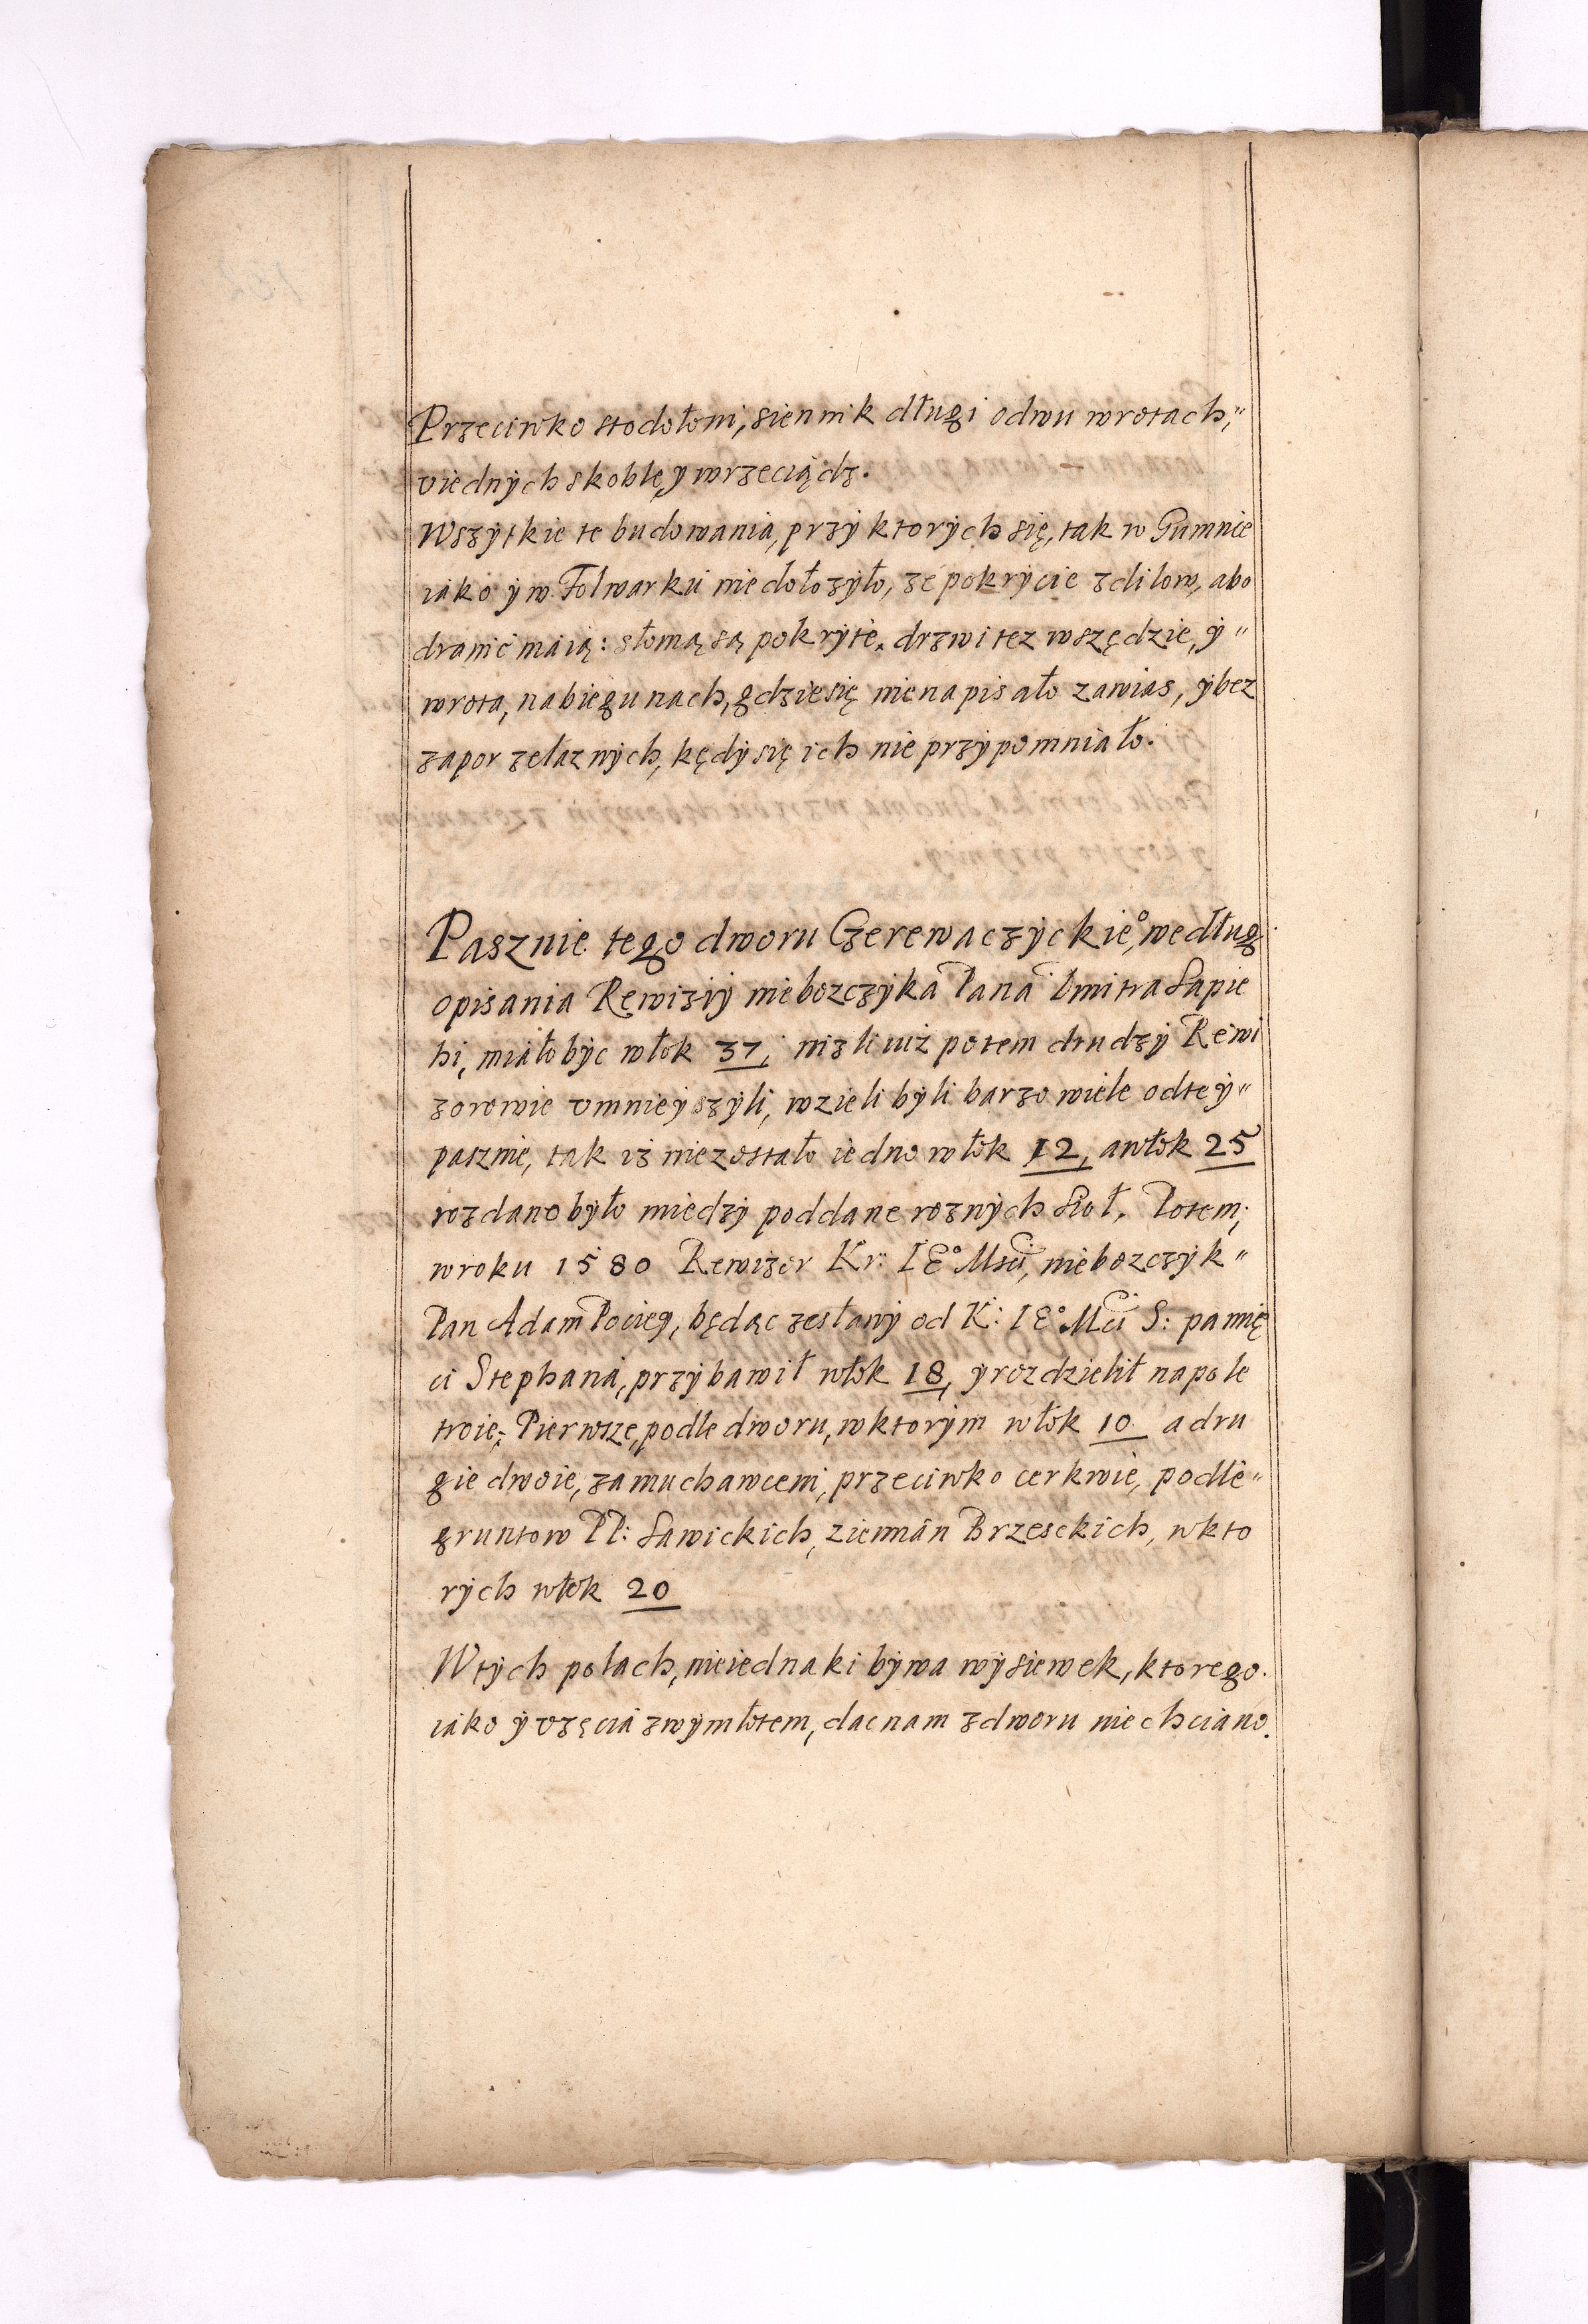 Przeciwko stodołom, siennik długi o dwu wrotach,"
v iednych skoble, y wrzeciądz.
Wszytkie te budowania, przy ktorych się, tak w Gumnie
iako y w Folwarku nie dołozyło, ze pokrycie z dilow, abo
dranic maią: słomą są pokryte, drzwi tez wszędzie, y"
wrota, na biegunach, gdzie się nie napisało zawias, y bez
zapor zelaznych, kędy się ich nie przypomniało.
Pasznie tego dworu Czerewaczyckie°, według
opisania Rewiziy nieboszczyka Pana Dmitra Sapie
hi, miało być włok 37, nizli iuż potem drudzy Rewi
zorowie vmnieyszyli, wzieli byli barzo wiele od tey"
pasznie, tak iż nie zostało iedno włok 12, a włok 25
rozdano było miedzy poddane roznych Sioł. Potem,
w roku 1580 Rewizor Kr: IE° Msci, nieboszczyk"
Pan Adam Pociey, będąc zesłany od K: IE° Mci S: pamię
ci Stephana, przybawił włok 18, y rozdzielił na pole
troie; Pierwsze, podle dworu, w ktorym włok 10 a dru
gie dwoie, za muchawcem, przeciwko cerkwie, podle"
gruntow PP: Sawickich, ziemian Brzesckich, w kto
rych włok 20
W tych polach, nieiednaki bywa wysiewek, ktorego
iako y vżęcia z wymłotem, dac nam z dworu nie chciano.